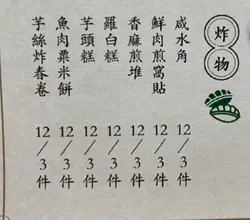 炸物
咸水角 12/3件
鮮肉煎窩貼 12/3件
香麻煎堆 12/3件
羅白糕 12/3件
芋頭糕 12/3件
魚肉粟米餅 12/3件
芋絲炸春卷 12/3件